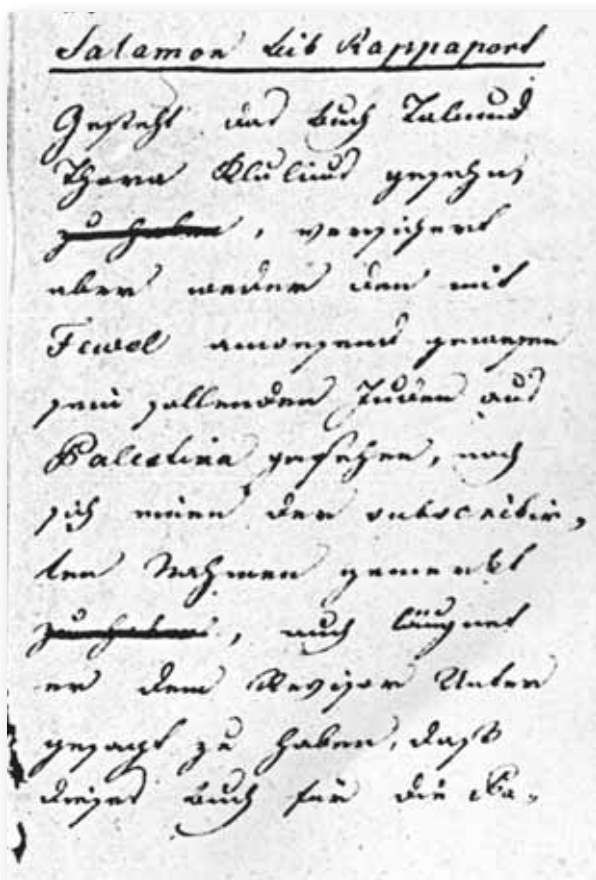 Salamon Leib Rappaport
Gesteht das Buch Talmud
Thora gesehen
zu haben, versichert
aber weder den mit
Feivel anwesend gewesen
sein sollenden Juden aus
Palestina gesehen, noch
sich einen der subscribir,
ten Nahmen gemerkt
zu haben, auch läugnet
er dem Revisor Unter
gesagt zu haben, daß
dieses Buch für die Pa,